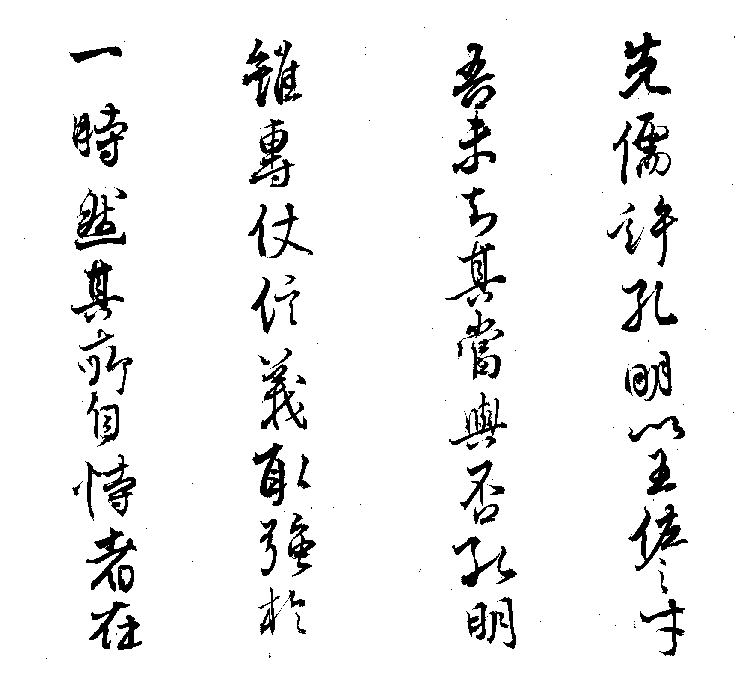 先儒許孔明以王佐之才
吾未知其當與否孔明
雖專仗信義取強於
一時然其所自恃者在